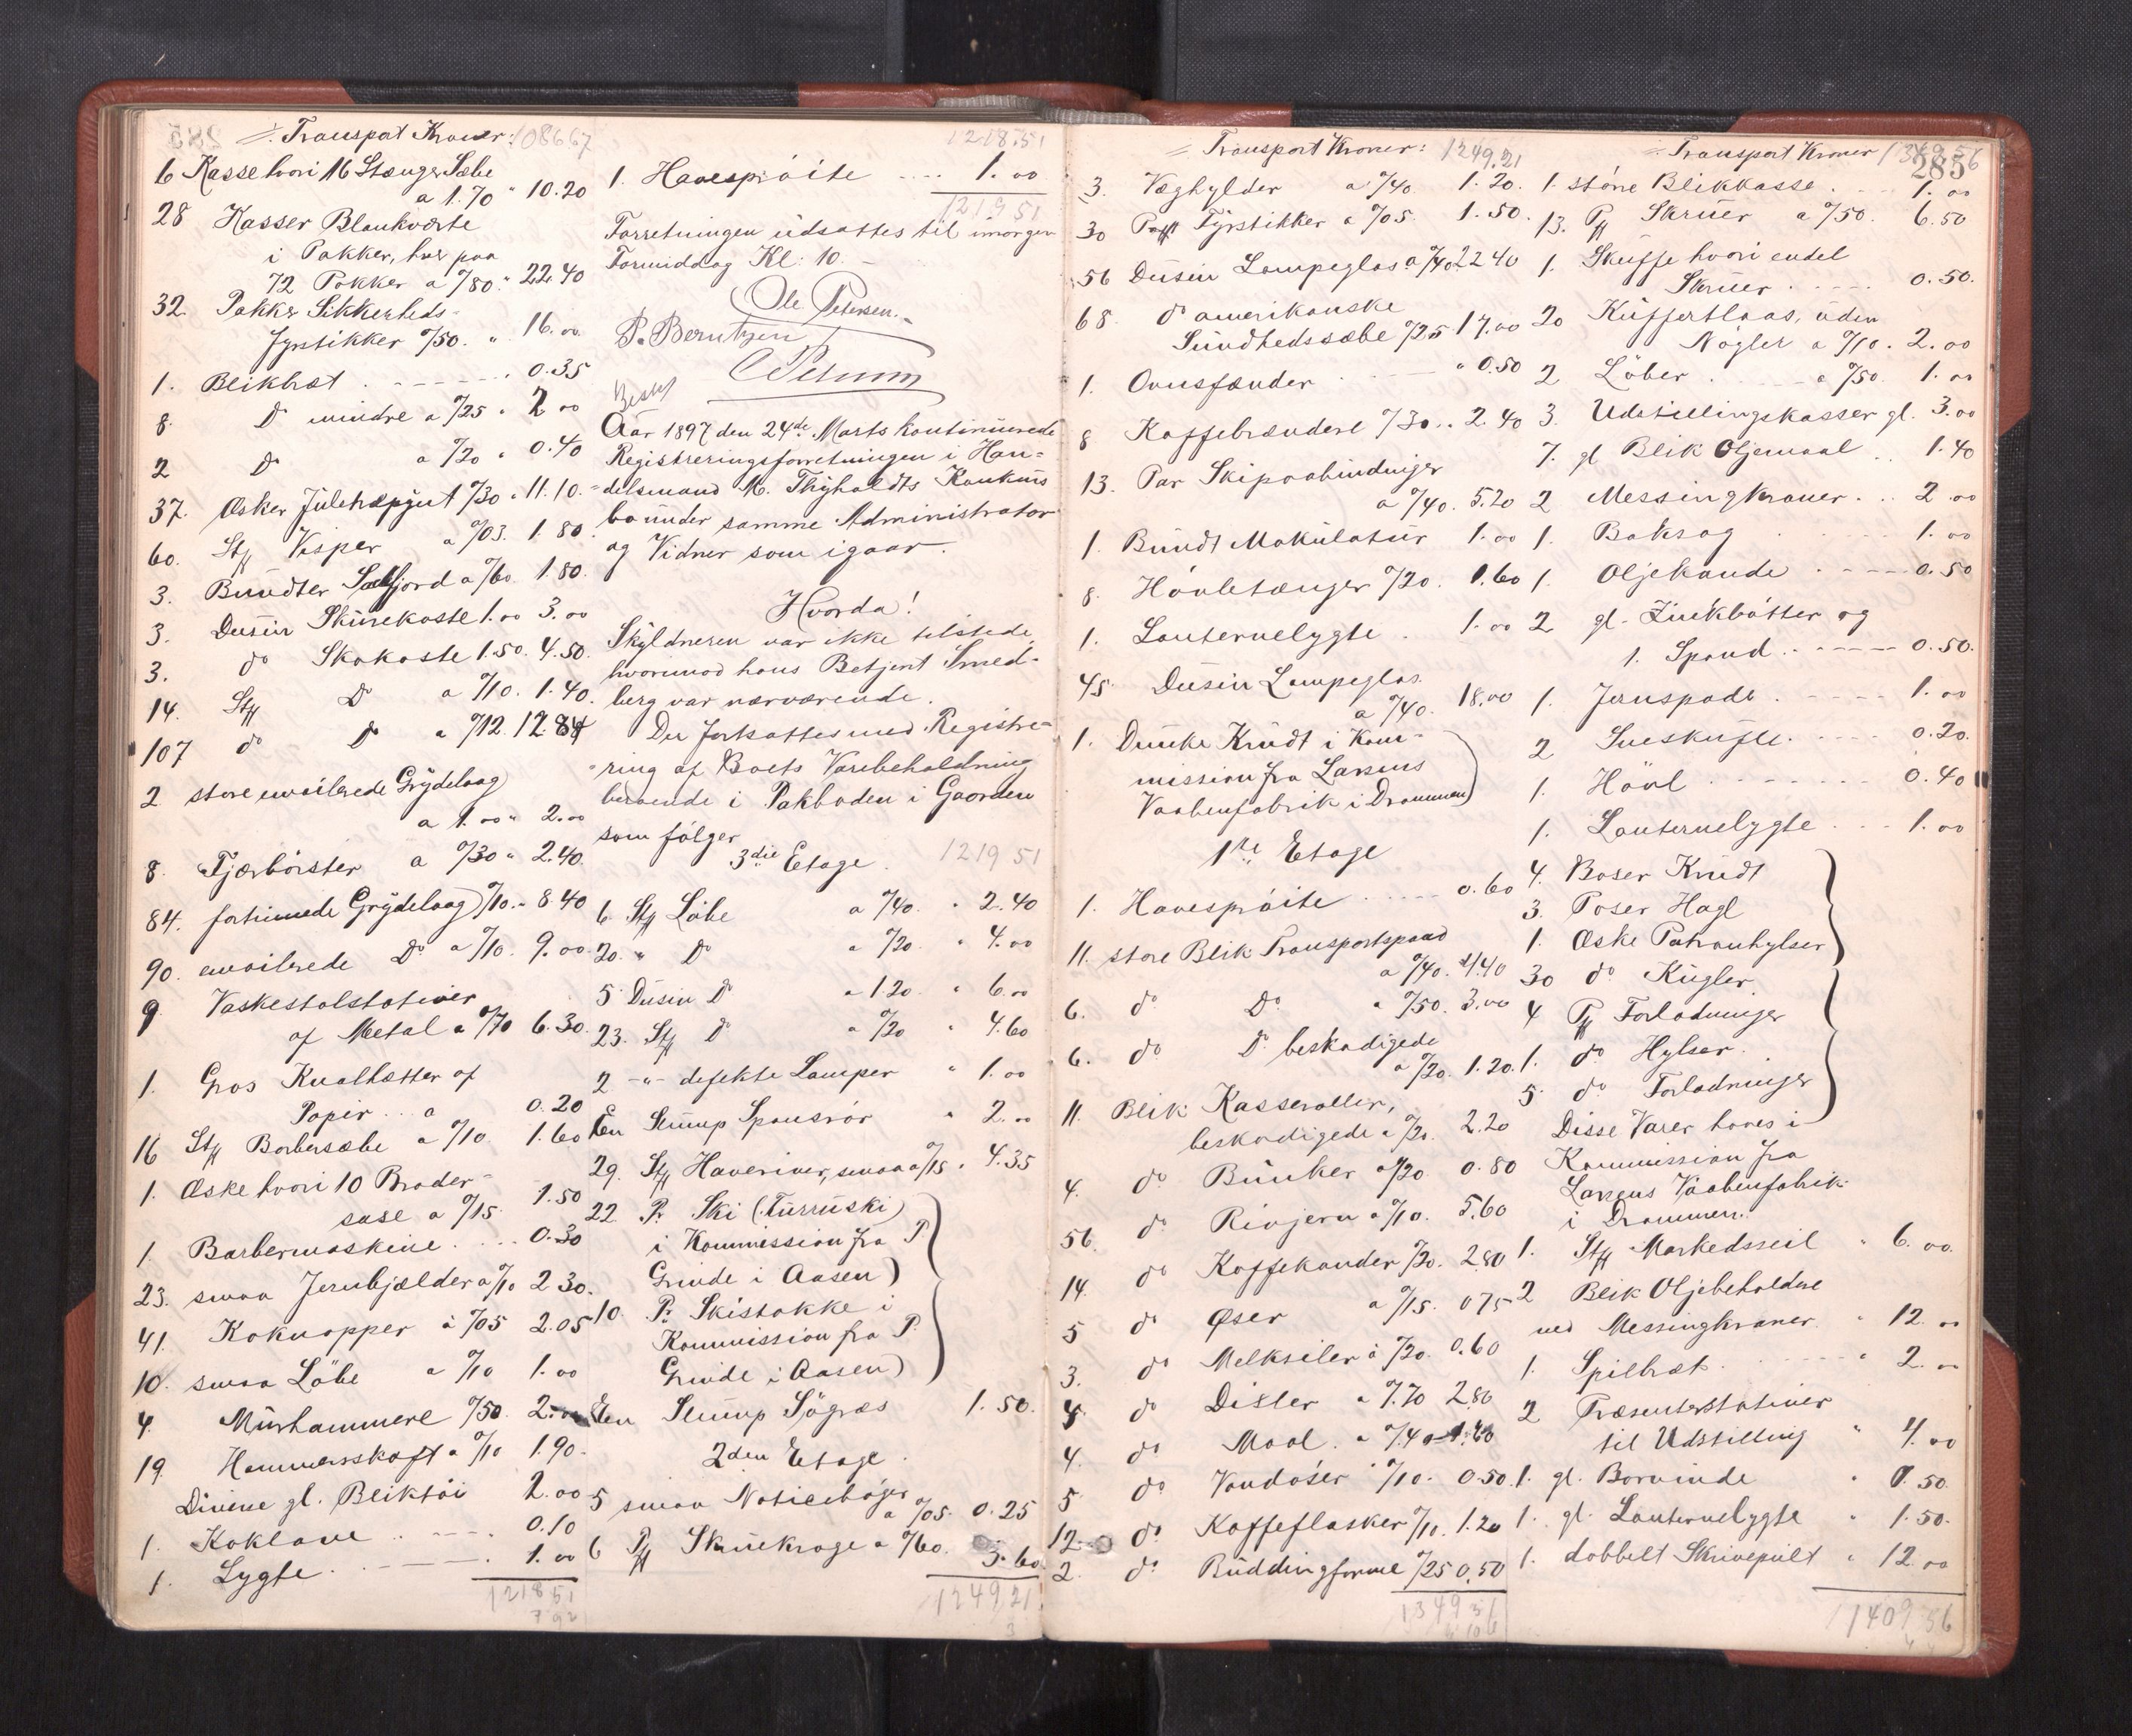 Transport Kroner: 108667
6 Kasse hvori 16 Stænger Sæbe
a 1.70 " 10.20
28 Kasser Blanksværte
i Pakker, hver paa
72 Pakker a %80 " 22.40
32. Pakker Sikkerheds-
fyrstikker %50. " 16.00
1. Blikbræt . - - - - . 0.35
8. Do mindre a %25 " 2.00
2 Do a %20 " 0.40
37. Æsker Juletræpynt %30 " 11.10.
60. Stk Visper a %03. 1.80.
3. Bundter a %60. 1.80.
3. Dusin Skurekoste 1.00 3.00
3. do Skokoste 1.50. 4.50.
14. Stk Do a %10. 1.40.
107 do Do a %12. 12.84
2 store emailerede Grydelaag
a 1.00 " 2.00
8. Tjærbörster a %30 " 2.40.
84. fortinnede Grydelaag %10. " 8.40
90. emailerede Do a %10. 9.00.
9 Vaskestolstativer
af Metal a %70 6.30.
1. Gros Knalhætter af
Papir . . a 0.20
16 Stk Barbersæbe a %10. 1.60
1. Æske hvori 10 Broder-
sase a %15. 1.50
1. Barbermaskine . . . . 0.30
23. smaa Jernbjælder a %10 2.30.
41. Koknapper à %05 2.05
10. smaa Löbe a %10 1.00
4. Murhammere %50. 2.00
19. Hammerskaft a %10 1.90.
Diverse gl. Bliktöi 2.00
1. Koklave . . - - - . 0.10
1. Lygte . - - - - . 1.00
1218 51
1218.51
1. Havespröite . . . . 1.00
1219 51
Forretningen udsattes til imorgen
Formiddag Kl: 10. -
Ole Petersen.
P. Berntzen
Aar 1897 den 24de Marts kontinuerede
Registreringsforretningen i Han-
delsmand M. Thyholdts Konkurs
bo under samme Administrator
og Vidner som igaar.
Hvorda!
Skyldneren var ikke tilstede,
hvorimod hans Betjent Smed-
berg var nærværende.
Der fortsattes med Registre-
ring af Boets Varebeholdning
beroende i Pakboden i Gaarden
som fölger
3die Etage. 1219 51
6 Stk Löbe a %40. " 2.40
20. " Do a %20. " 4.00
5 Dusin Do a 1.20 " 6.00
23. Stk Do a %20 " 4.60
2 -"- defekte Lamper " 1.00
En Slump Spansrör " 2.00
29. Stk Haveriver, smaa a %15 " 4.35
22 Pr Ski (Turruski)
i Kommission fra P
Grinde i Aasen)
10. Pr Skistokke i
Kommission fra P.
Grinde i Aasen)
En Slump Sögræs 1.50.
2den Etage.
5 smaa Noticeböger
a %05. 0.25
6 Pk Skruekroge a %60. 3.60
1249 21
Transport Kroner: 1249.21
3. Væghylder a %40. 1.20.
30 Pak Fyrstikker a %05. 1.50.
56 Dusin Lampeglas a %40 22 40
68. do amerikanske
Sundhedssæbe %25 17.00
1. Ovnsfænder " 0.50
8 Kaffebrændere %30 . . 2.40
13. Par Skipaabindinger
a %40. 5.20
1. Bundt Makulatur 1.00
8. Hövletænger %20. 1.60
1. Lanternelygte . 1.00
45. Dusin Lampeglas
a %40. 18.00
1. Dunke Krudt i Kom-
mission fra Larsens
Vaabenfabrik i Drammen)
1ste Etage
1. Havespröite . . . . . 0.60
11. store Blik Transportspand
a %40. 4.40
6. do Do a %50. 3.00
6. do Do beskadigede
a %20. 1.20.
11. Blik Kasseroller,
beskadigede a %20. 2.20
4. do Bunker a %20 0.80
56. do Rivjern a %10. 5.60
14. do Kaffekander %20. 2.80
5 do Øser a %15. 0 75
3. do Melksiler à %20. 0.60
4 do Disler a %70 2.80
4. do Maal. a %40 1.60
5 do Vandöser %10. 0.50
12 do Kaffeflasker %10. 1.20
2. do Buddingforme %25 0.50
1349 56
Transport Kroner 1349 56
285
1. större Blikkasse . . 1.00
13. Pk Skruer a %50. 6.50
1. Skuffe hvori endel
Skruer . . . . . 0.50.
20 Kuffertlaas, uden
Nögler a %10. 2.00
2 Löber . . . a %50. 1.00
3. Udstillingskasser gl. 3.00
7. gl Blik Oljemaal . . 1.40
2 Messingkraner . . . 2.00
1. Baksag . . . . . 1.00
1. Oljekande . . . . . 0.50
2 gl. Zinkbötter og
1. Spand . . - - - - 0.50.
1. Jernspade . - - - - 1.00
2 Sneskuffe . - - - - 0.20.
1. Hövl . - - - - 0.40
1. Lanternelygte . . . 1.00
4. Boser Krudt
3. Poser Hagl
1. Æske Patronhylser
30 do Kugler.
4 Pk Forladninger
1. do Hylser.
5. do Forladninger
Disse Varer haves i
Kommission fra
Larsens Vaabenfabrik
i Drammen.
1. Stk Markedsseil " 6.00.
2 Blik Oljebeholdere
med Messingkraner. " 12.00
1. Spilbræt . . . " 2.00
2 Præsenterstativer
til Udstilling " 4.00
1. gl. Borvinde " 1.50.
1. gl. Lanternelygte " 1.50.
1. dobbelt Skrivepult " 12.00
1409 56